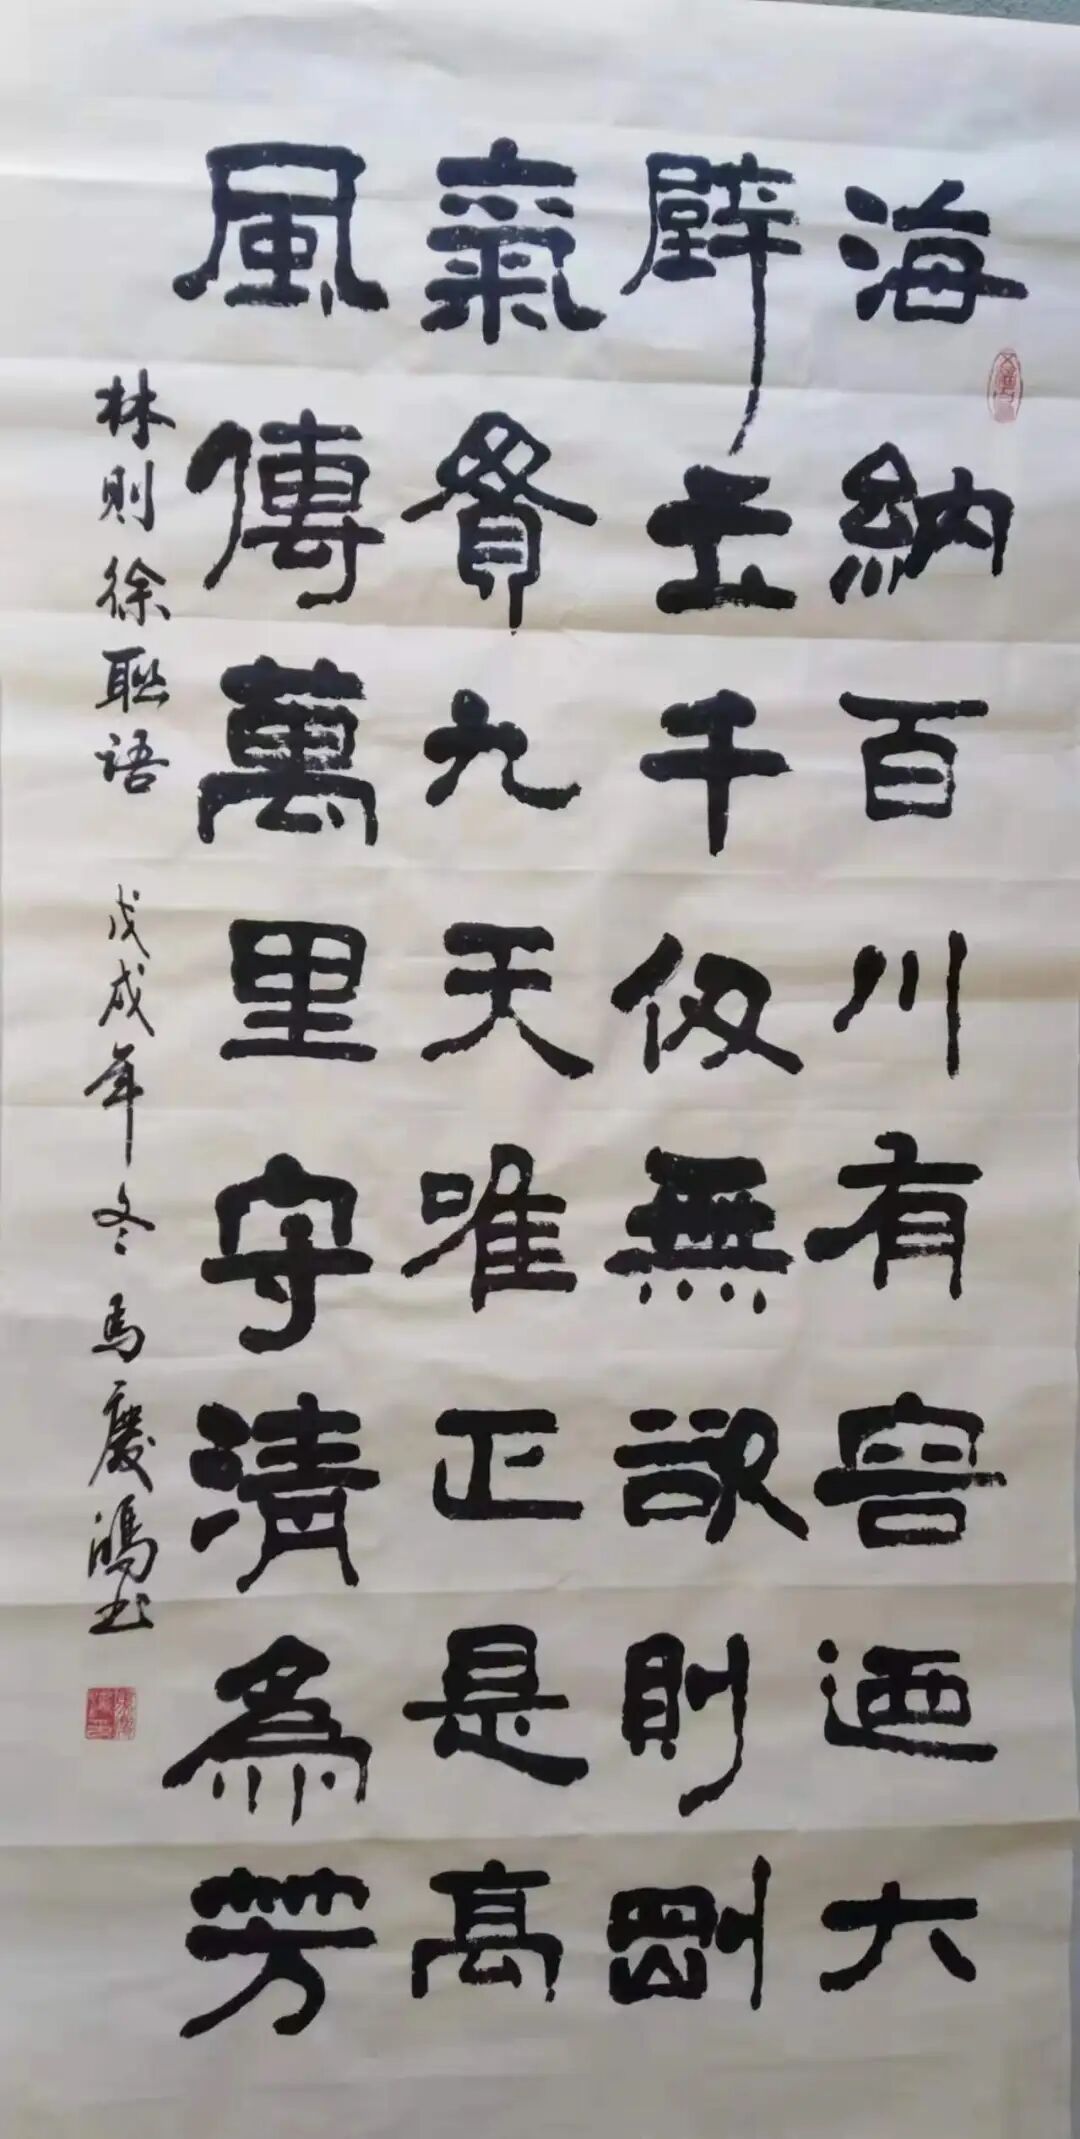 海納百川有容迺大
壁立千仭無欲則剛
氣貫九天唯正是高
風傳萬里守清為芳
林则徐联语 戊戌年冬 马慶鸿书